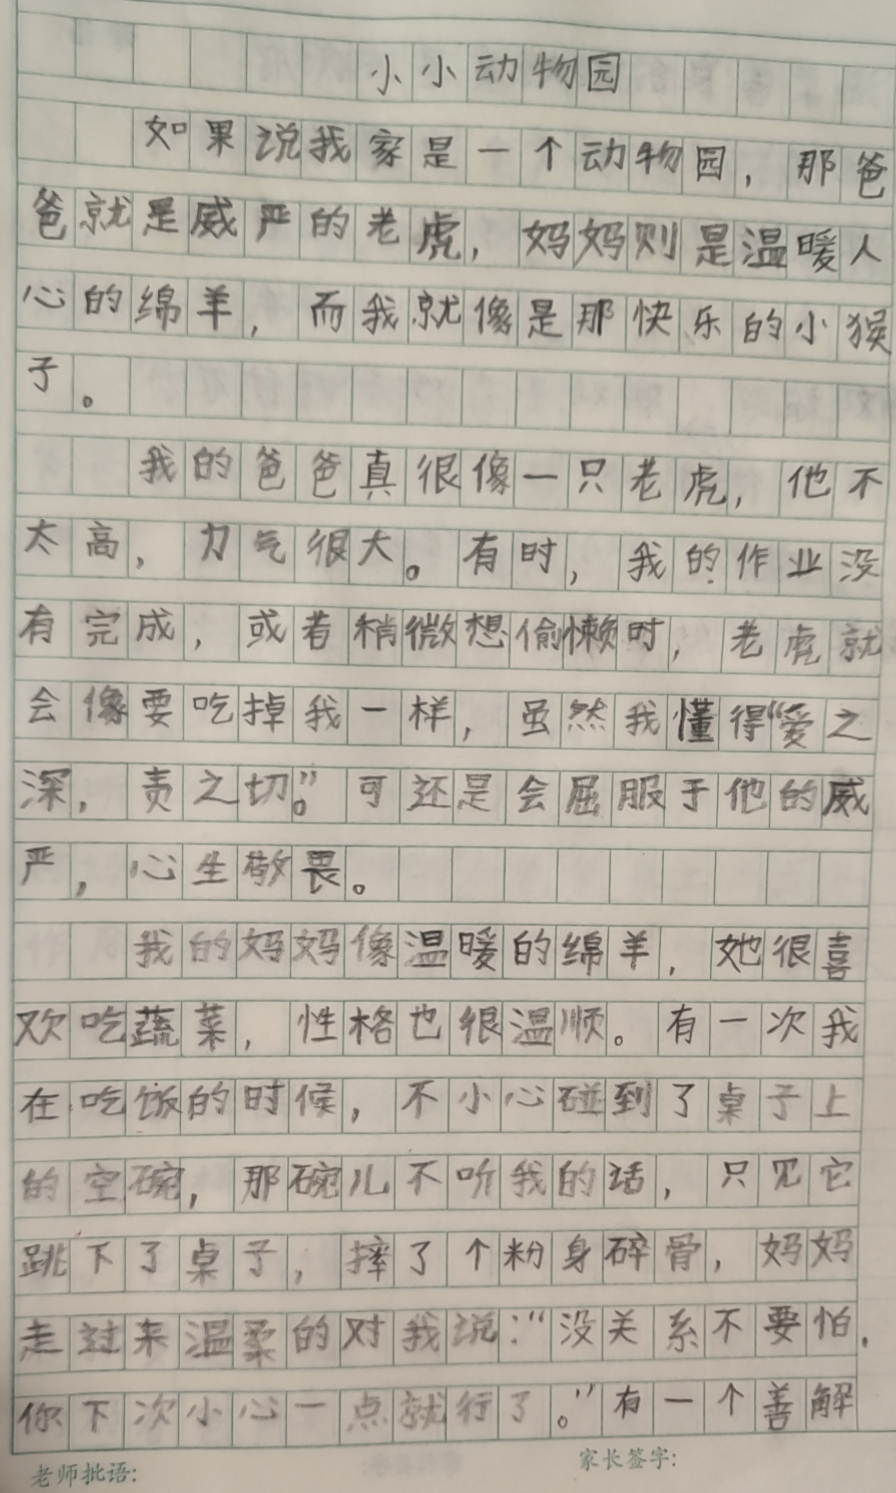 小小动物园
如果说我家是一个动物园，那爸
爸就是威严的老虎，妈妈则是温暖人
心的绵羊，而我就像是那快乐的小猴
子。
我的爸爸真很像一只老虎，他不
太高，力气很大。有时，我的作业没
有完成，或者稍微想偷懒时，老虎就
会像要吃掉我一样，虽然我懂得“爱之
深，责之切”。可还是会屈服于他的威
严，心生敬畏。
我的妈妈像温暖的绵羊，她很喜
欢吃蔬菜，性格也很温顺。有一次我
在吃饭的时候，不小心碰到了桌子上
的空碗，那碗儿不听我的话，只见它
跳下了桌子，摔了个粉身碎骨，妈妈
走过来温柔的对我说：“没关系不要怕，
你下次小心一点就行了。”有一个善解
老师批语:
家长签字: